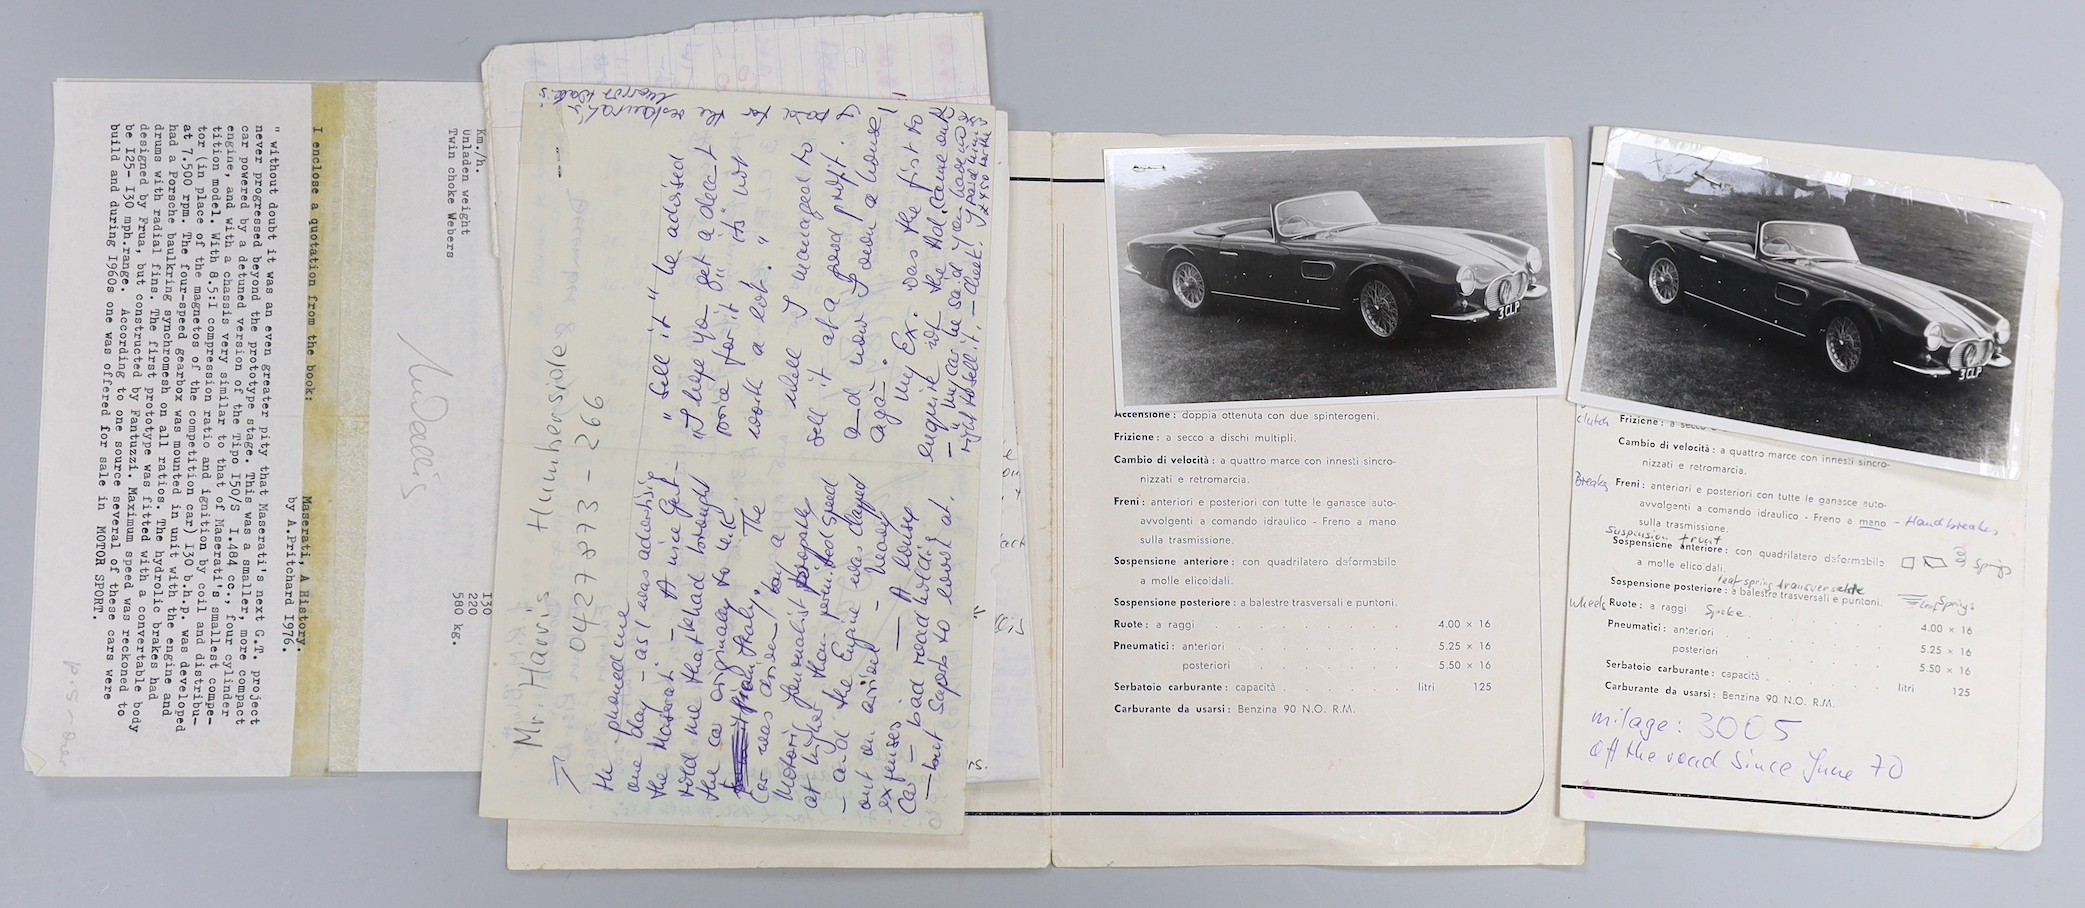 I enclose a quotation from the book:
Maserati, A History.
by A.Pritchard 1976.
" without doubt it was an even greater pity that Maserati's next G.T. project
never progressed beyond the prototype stage. This was a smaller, more compact
car powered by a detuned version of the Tipo I50/S I.484 cc., four cylinder
engine, and with a chassis very similar to that of Maserati's smallest compe-
tition model. With 8.5:I compression ratio and ignition by coil and distribu-
tor (in place of the magnetos of the competition car) I30 b.h.p. was developed
at 7.500 rpm. The four-speed gearbox was mounted in unit with the engine and
had a Porsche baulkring synchromesh on all ratios. The hydrolic brakes had
drums with radial fins. The first prototype was fitted with a convertable body
designed by Frua, but constructed by Fantuzzi. Maximum speed was reckoned to
be I25- I30 mph.range. According to one source several of these cars were
build and during I960s one was offered for sale in MOTOR SPORT.
p.s - over
I30
Km./h. 220
Unladen weight 580 kg.
Twin choke Webers
Mr. Harris Humberside
0427873-266
He phoned me
one day - as I was advertising
the Maserati - A nice Gent -
told me that he had brought
the car originally to U.K.
from Italy. The
car was driven by a
Motoring Journalist
at higher than permitted speed
- and the Engine was clapped
out on arrival - Heavy
expenses. - A lovely
car - bad roadholding
- but Superb to look at.
"Sell it" he advised
"I hope you get a decent
price for it - it's not
worth a lot."
Well I managed to
sell it at a good profit.
and now I own a house
again.
My Ex. was the first to
enquire if the Ad. came out
- my car he said, you have no
right to sell it. - cheek! I paid him
£450 for it
& paid for the restauration
3 CLP
Accensione: doppia ottenuta con due spinterogeni.
Frizione: a secco a dischi multipli.
Cambio di velocità: a quattro marce con innesti sincro-
nizzati e retromarcia.
Freni: anteriori e posteriori con tutte le ganasce auto-
avvolgenti a comando idraulico - Freno a mano
sulla trasmissione.
Sospensione anteriore: con quadrilatero deformabile
a molle elicoidali.
Sospensione posteriore: a balestre trasversali e puntoni.
Ruote: a raggi 4.00 × 16
Pneumatici: anteriori 5.25 × 16
posteriori 5.50 × 16
Serbatoio carburante: capacità litri 125
Carburante da usarsi: Benzina 90 N.O. R.M.
3 CLP
clutch Frizione: a secco
Cambio di velocità: a quattro marce con innesti sincro-
nizzati e retromarcia.
Breaks Freni: anteriori e posteriori con tutte le ganasce auto-
avvolgenti a comando idraulico - Freno a mano - Handbreakes
sulla trasmissione.
Suspension front
Sospensione anteriore: con quadrilatero deformabile Springs
a molle elicoidali.
leaf spring transversale
Sospensione posteriore: a balestre trasversali e puntoni. Leaf Springs
Wheels Ruote: a raggi Spoke 4.00 × 16
Pneumatici: anteriori 5.25 × 16
posteriori 5.50 × 16
Serbatoio carburante: capacità litri 125
Carburante da usarsi: Benzina 90 N.O. R.M.
milage: 3005
off the road since June 70